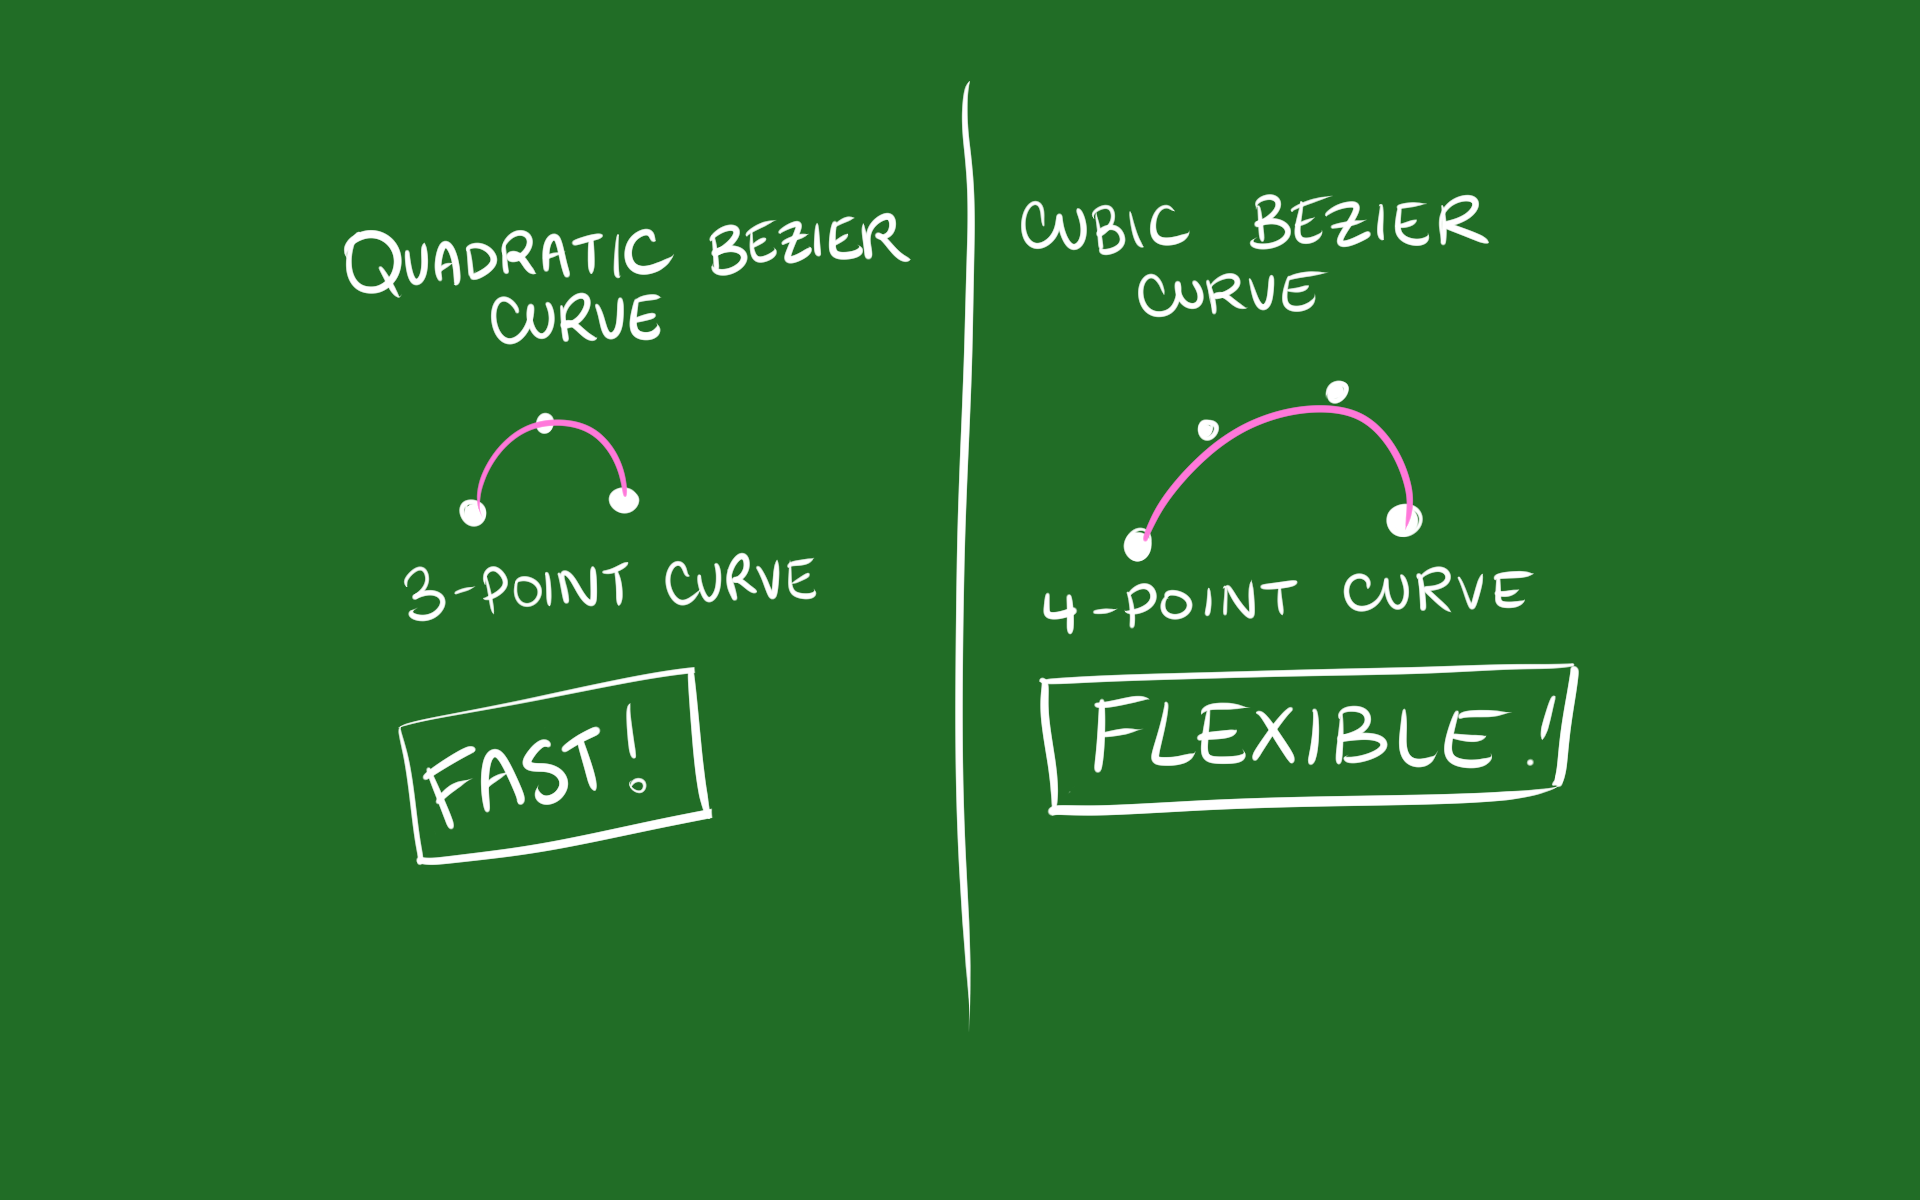 QUADRATIC BEZIER
CURVE
3-POINT CURVE
FAST!
CUBIC BEZIER
CURVE
4-POINT CURVE
FLEXIBLE!